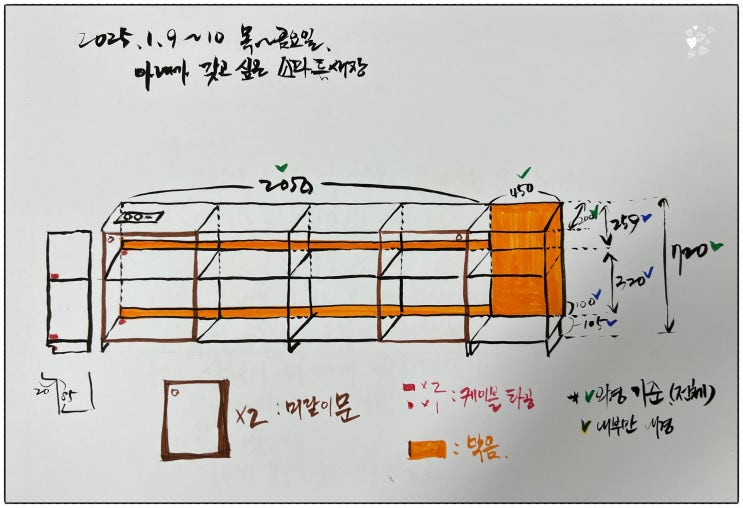 2025.1.9~10 목~금요일.
아내가 갖고 싶은 소파 틈새장
2050
450
200
259
320
720
100
105
20
85
×2 : 미닫이문
×2
×1
: 케이블 타공
: 막음.
* 외경 기준 (전체)
내부만 내경